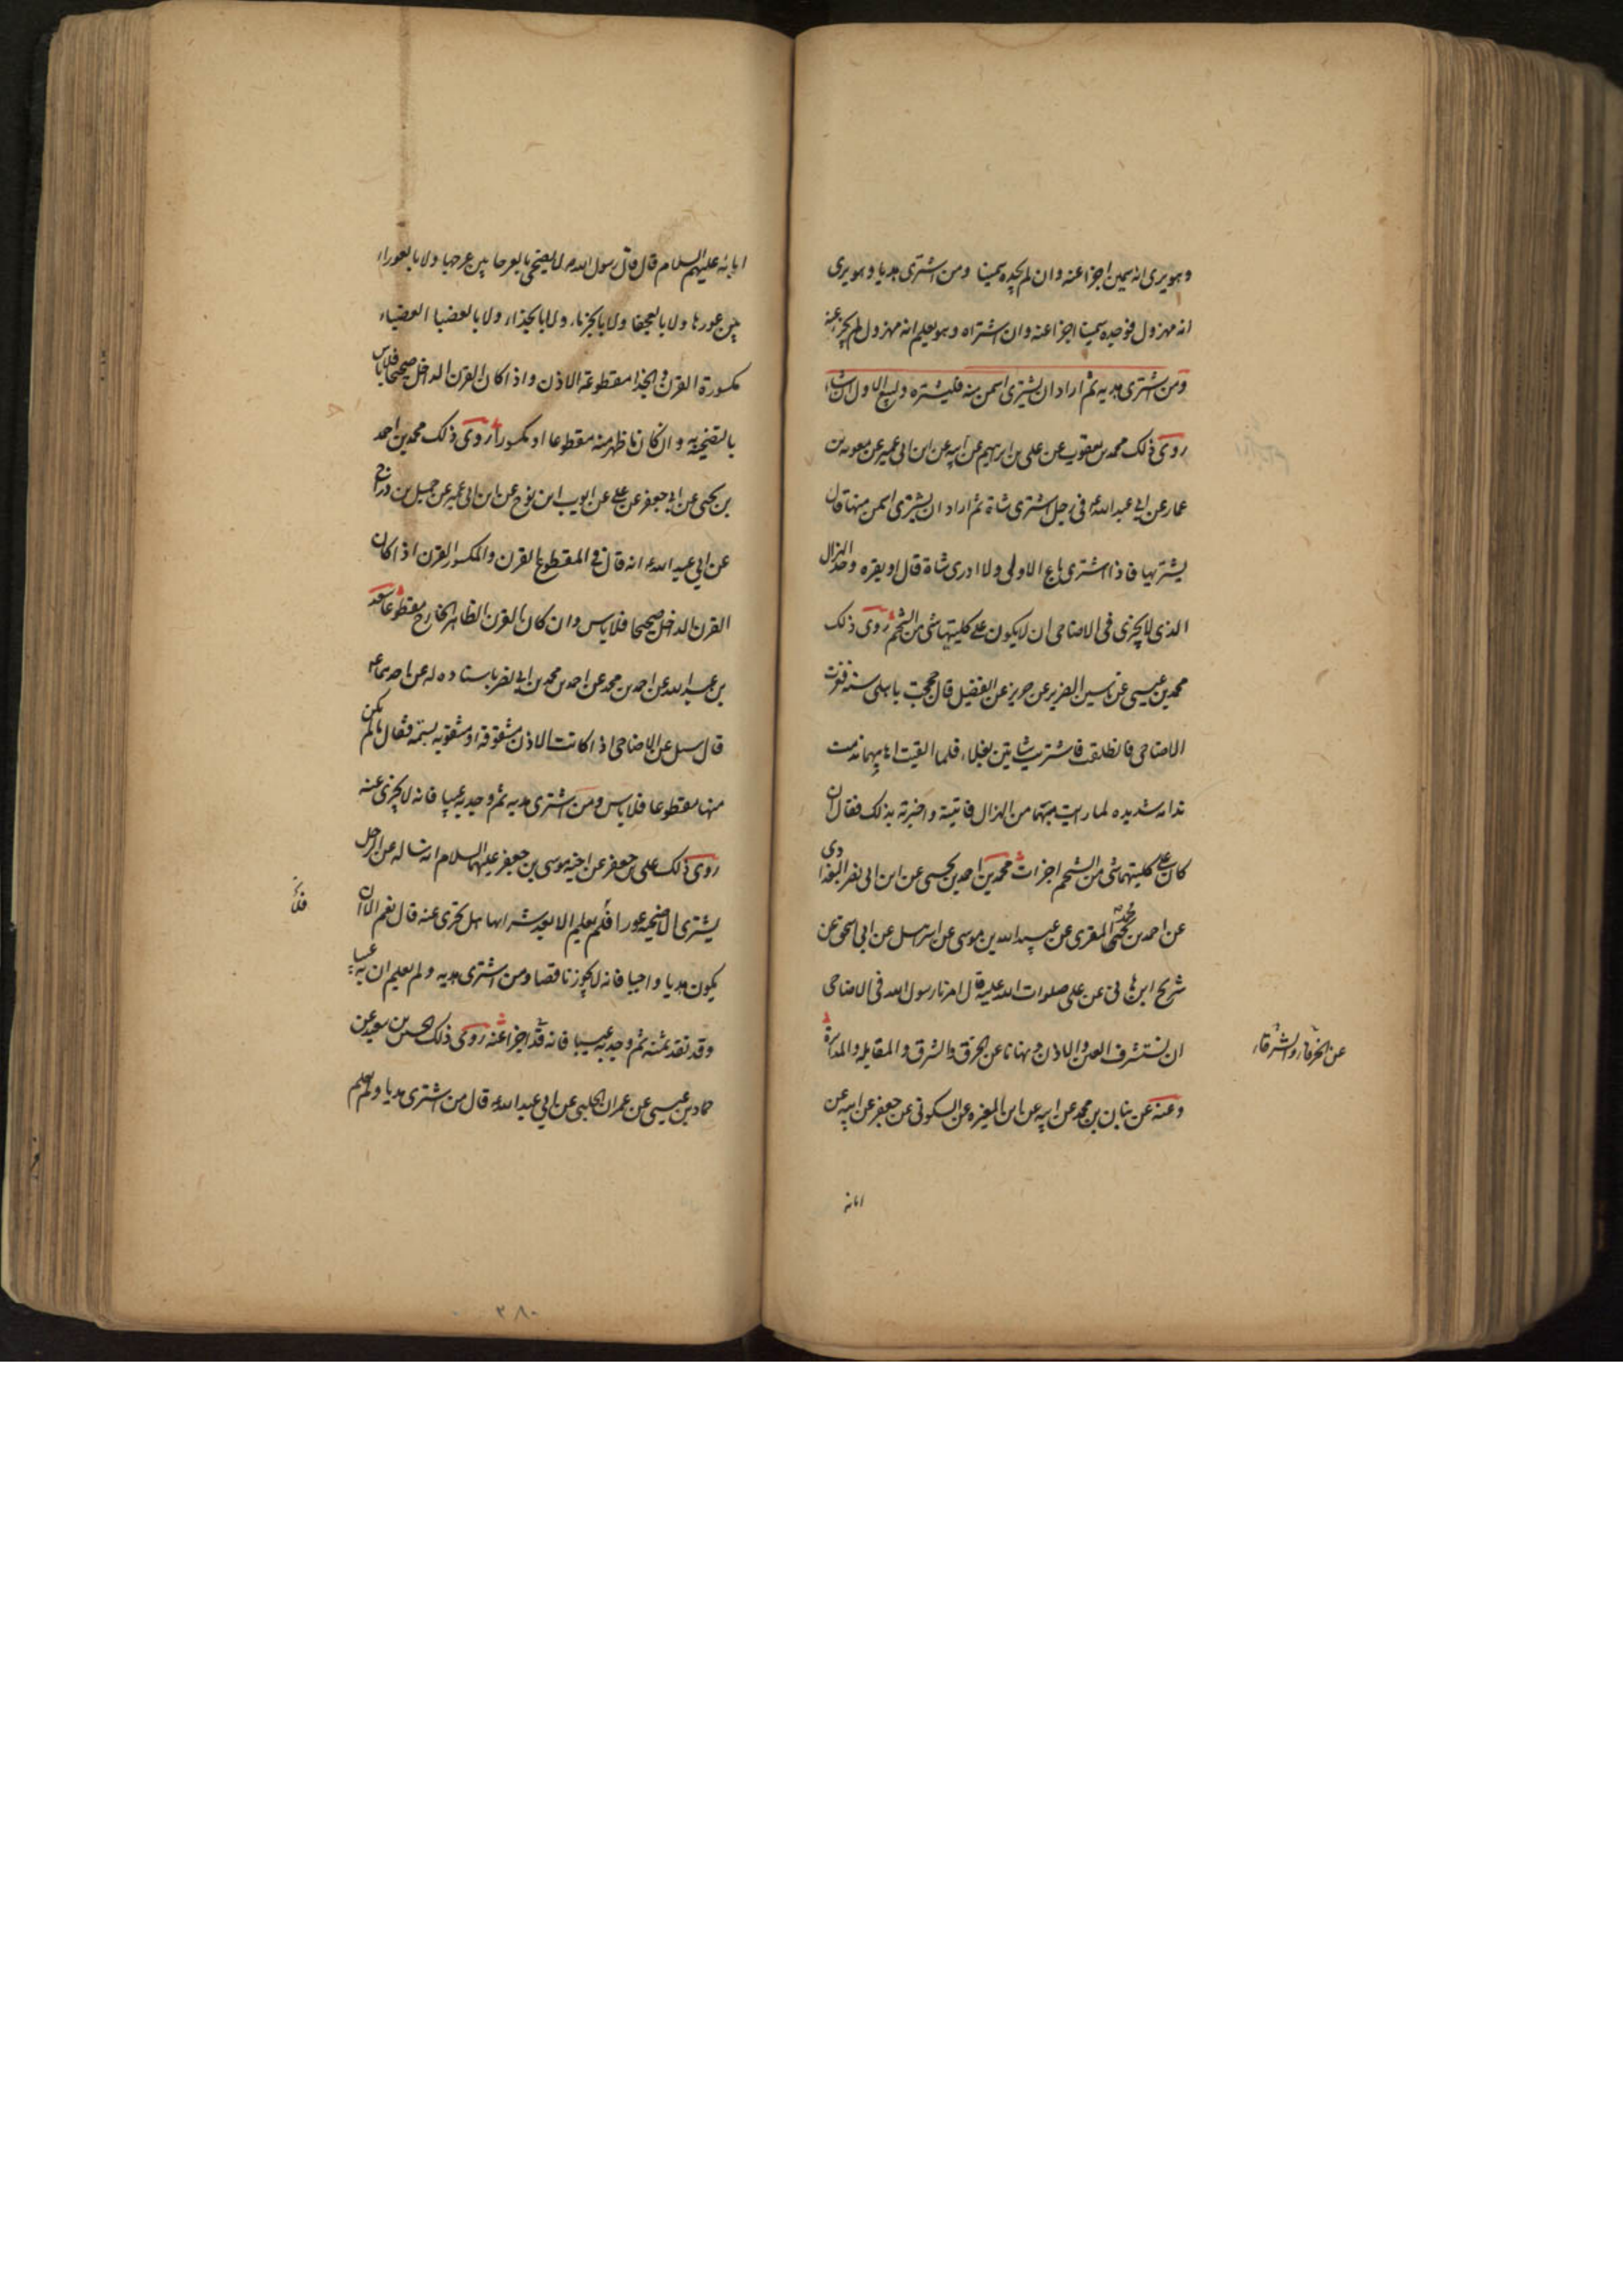 وهو يرى انه سمين اجزا عنه وان لم يجده سمينا ومن اشترى هديا وهو يرى
انه مهزول فوجده سمينا اجزا عنه وان اشتراه وهو يعلم انه مهزول لم يجز عنه
ومن اشترى هديه ثم اراد ان يشترى اسمن منه فليشتره وليبع الاول ان شاء
روى ذلك محمد بن يعقوب عن على بن ابراهيم عن ابيه عن ابن ابى عمير عن معويه بن
عمار عن ابى عبد الله ع فى رجل اشترى شاة ثم اراد ان يشترى اسمن منها قال
يشتريها فاذا اشترى باع الاولى ولا ادرى شاة قال او بقره وحد الهزال
الذى لا يجزى فى الاضاحى ان لا يكون على كليتها شى من الشحم روى ذلك
محمد بن عيسى عن ياسين الضرير عن حريز عن الفضيل قال حججت باهلى سنه فعزت
الاضاحى فانطلقت فاشتريت شاتين بغلاء فلما القيت اهابيهما ندمت
ندامه شديده لما رايت بهما من الهزال فاتيته واخبرته بذلك فقال ان
كان على كليتهما شى من الشحم اجزات محمد بن احمد بن يحيى عن ابن ابى نصر البغدادى
عن احمد بن يحيى المقرى عن عبيد الله بن موسى عن اسرائيل عن ابى اسحق عن
شريح ابن هانى عن على صلوات الله عليه قال امرنا رسول الله فى الاضاحى
ان نستشرف العين والاذن ونهانا عن الخرق والشرق والمقابله والمدابرة
عن الخرقاء والشرقاء
وعنه عن بنان بن محمد عن ابيه عن ابن المغيره عن السكونى عن جعفر عن ابيه عن
ابائه
ابائه عليهم السلام قال قال رسول الله ص لا يضحى بالعرجا بين عرجها ولا بالعوراء
بين عورها ولا بالعجفا ولا بالجرباء ولا بالجذاء ولا بالعضبا العضباء
مكسورة القرن والجذا مقطوعة الاذن واذا كان القرن الداخل صحيحا فلا باس
بالتضحيه به وان كان ما ظهر منه مقطوعا او مكسورا روى ذلك محمد بن احمد
بن يحيى عن ابى جعفر عن على عن ايوب ابن نوح عن ابن ابى عمير عن جميل بن دراج
عن ابى عبد الله ع انه قال فى المقطوع القرن والمكسور القرن اذا كان
القرن الداخل صحيحا فلا باس وان كان القرن الظاهر الخارج مقطوعا سعد
بن عبد الله عن احمد بن محمد عن احمد بن محمد بن ابى نصر باسناده له عن احدهما ع
قال سئل عن الاضاحى اذا كانت الاذن مشقوقة او مثقوبه بسمة فقال ما لم يكن
منها مقطوعا فلا باس ومن اشترى هديه ثم وجد به عيبا فانه لا يجزى عنه
روى ذلك على بن جعفر عن اخيه موسى بن جعفر عليهما السلام انه ساله عن الرجل
يشترى الاضحيه عورا فلم يعلم الا بعد شرائها هل تجزى عنه قال نعم الا ان
يكون هديا واجبا فانه لا يجوز ناقصا ومن اشترى هديه ولم يعلم ان به عيبا
وقد نقد ثمنه ثم وجد به عيبا فانه قد اجزا عنه روى ذلك الحسين بن سعيد عن
حماد بن عيسى عن عمران الحلبى عن ابى عبد الله ع قال من اشترى هديا ولم يعلم
٣٨٠